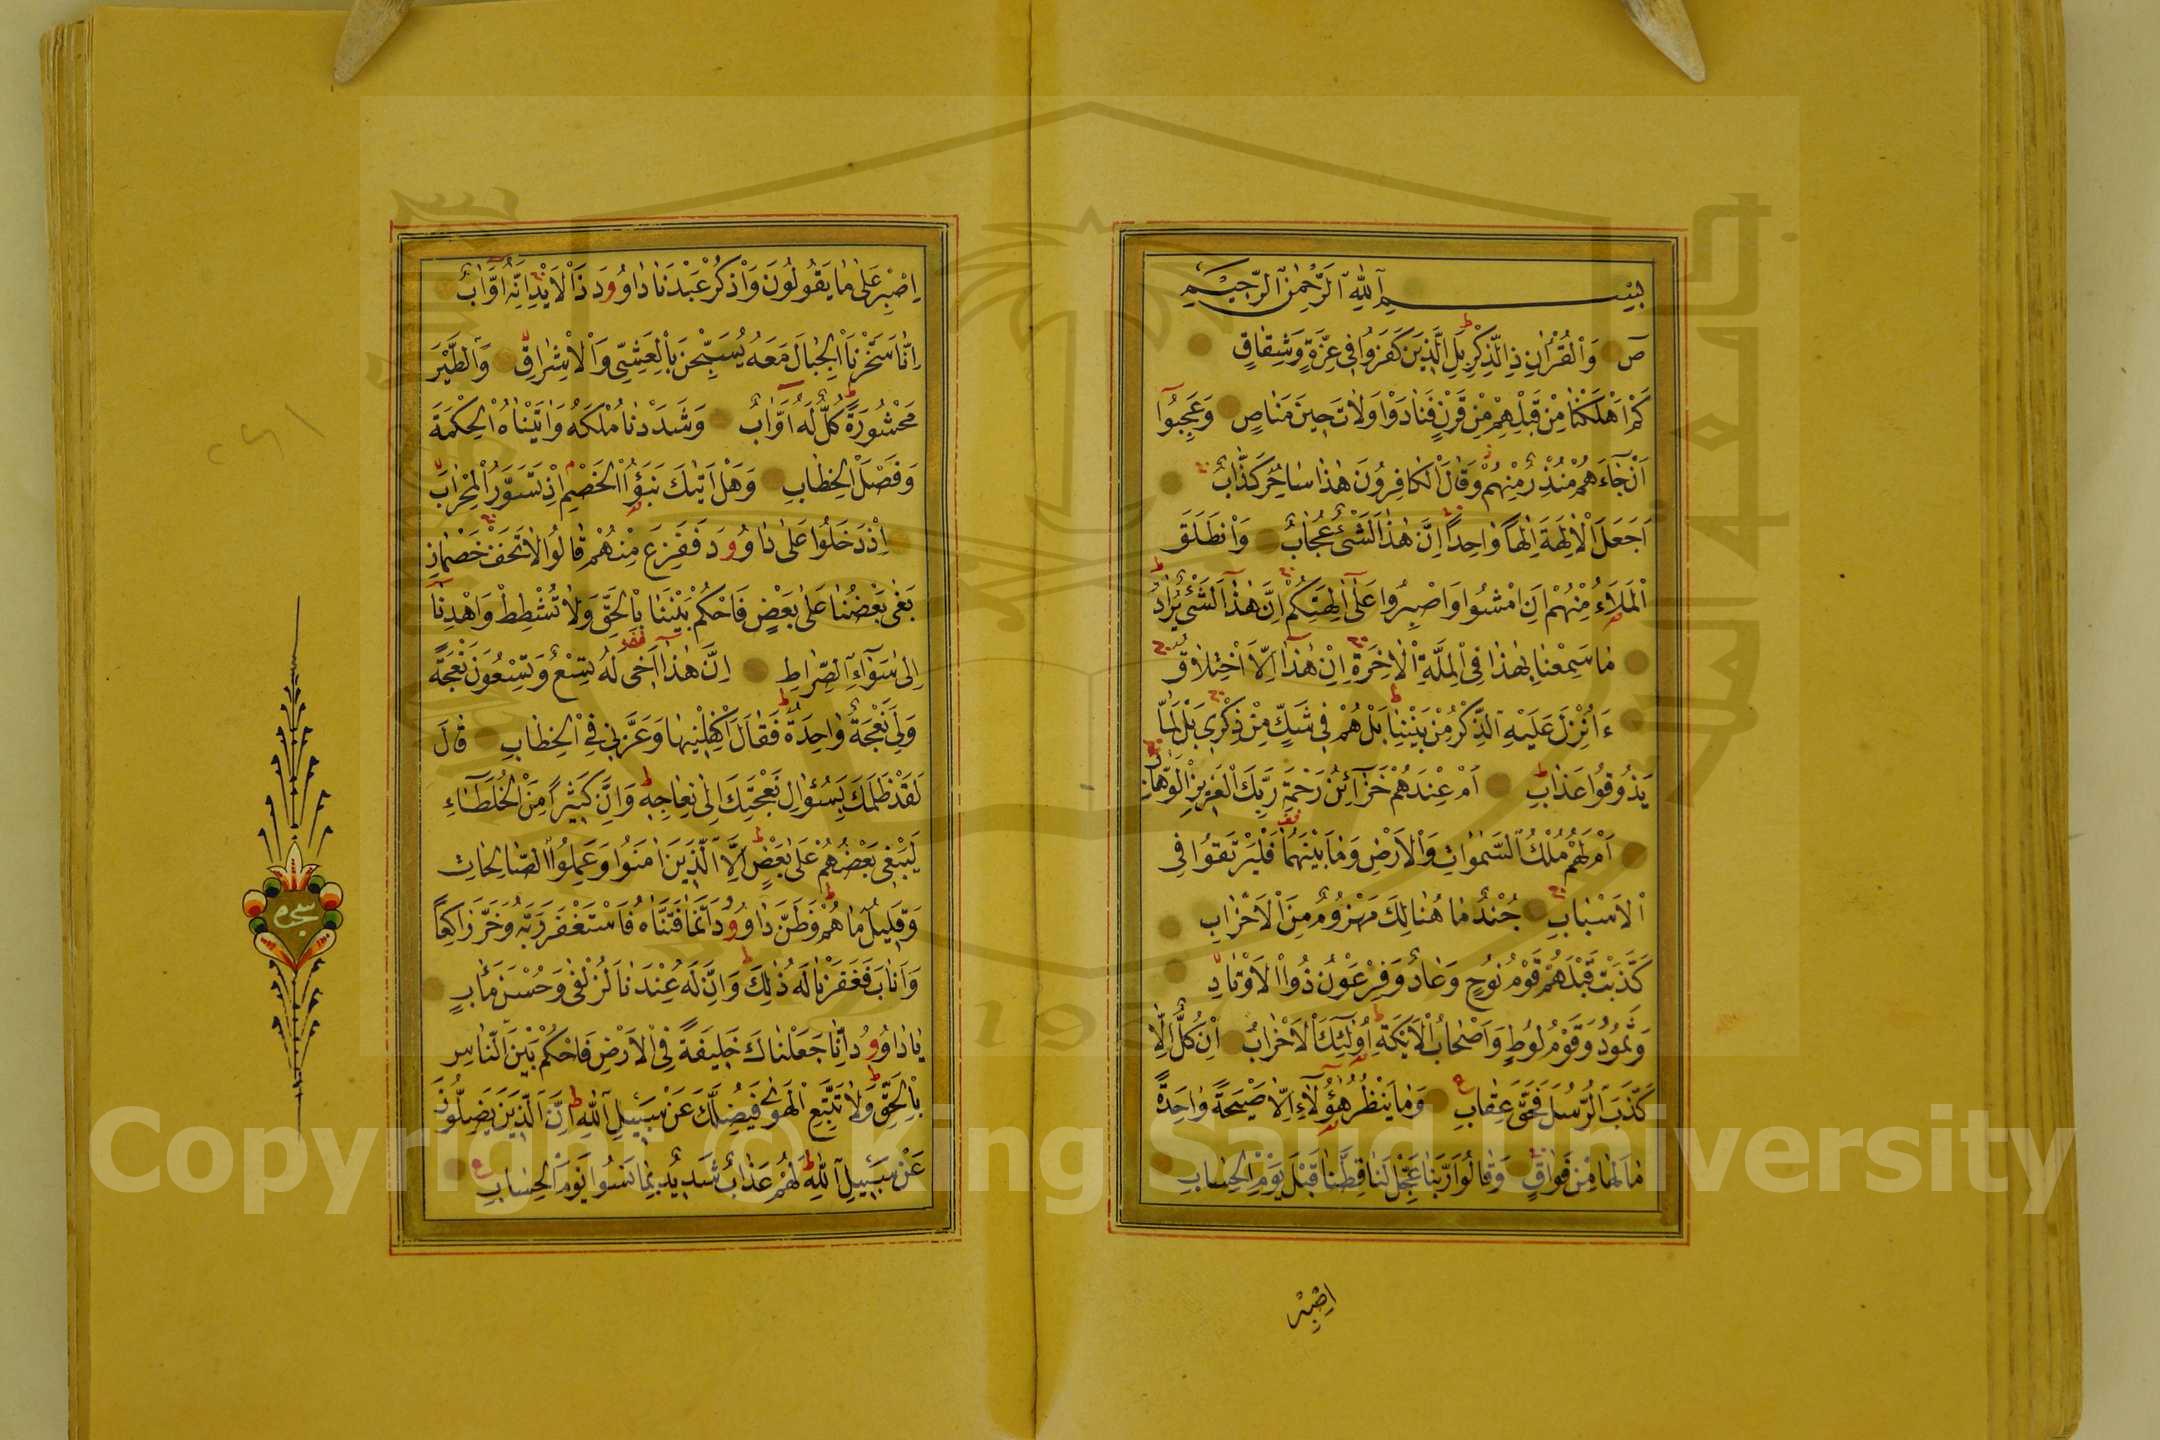 بِسْمِ اللهِ الرَّحْمٰنِ الرَّحِيْمِ
صٓ وَالْقُرْاٰنِ ذِي الذِّكْرِ بَلِ الَّذِينَ كَفَرُوا فِي عِزَّةٍ وَشِقَاقٍ
كَمْ اَهْلَكْنَا مِنْ قَبْلِهِمْ مِنْ قَرْنٍ فَنَادَوْا وَلَاتَ حِينَ مَنَاصٍ وَعَجِبُوٓا
اَنْ جَٓاءَهُمْ مُنْذِرٌ مِنْهُمْ وَقَالَ الْكَافِرُونَ هٰذَا سَاحِرٌ كَذَّابٌ
اَجَعَلَ الْاٰلِهَةَ اِلٰهًا وَاحِدًا اِنَّ هٰذَا لَشَيْءٌ عُجَابٌ وَانْطَلَقَ
الْمَلَاُ مِنْهُمْ اَنِ امْشُوا وَاصْبِرُوا عَلٰٓى اٰلِهَتِكُمْ اِنَّ هٰذَا لَشَيْءٌ يُرَادُ
مَا سَمِعْنَا بِهٰذَا فِي الْمِلَّةِ الْاٰخِرَةِ اِنْ هٰذَٓا اِلَّا اخْتِلَاقٌ
ءَاُنْزِلَ عَلَيْهِ الذِّكْرُ مِنْ بَيْنِنَا بَلْ هُمْ فِي شَكٍّ مِنْ ذِكْرِي بَلْ لَمَّا
يَذُوقُوا عَذَابِ اَمْ عِنْدَهُمْ خَزَٓائِنُ رَحْمَةِ رَبِّكَ الْعَزِيزِ الْوَهَّابِ
اَمْ لَهُمْ مُلْكُ السَّمٰوَاتِ وَالْاَرْضِ وَمَا بَيْنَهُمَا فَلْيَرْتَقُوا فِي
الْاَسْبَابِ جُنْدٌ مَا هُنَالِكَ مَهْزُومٌ مِنَ الْاَحْزَابِ
كَذَّبَتْ قَبْلَهُمْ قَوْمُ نُوحٍ وَعَادٌ وَفِرْعَوْنُ ذُوالْاَوْتَادِ
وَثَمُودُ وَقَوْمُ لُوطٍ وَاَصْحَابُ الْاَيْكَةِ اُولٰٓئِكَ الْاَحْزَابُ اِنْ كُلٌّ اِلَّا
كَذَّبَ الرُّسُلَ فَحَقَّ عِقَابِ وَمَا يَنْظُرُ هٰٓؤُلَٓاءِ اِلَّا صَيْحَةً وَاحِدَةً
مَا لَهَا مِنْ فَوَاقٍ وَقَالُوا رَبَّنَا عَجِّلْ لَنَا قِطَّنَا قَبْلَ يَوْمِ الْحِسَابِ
اِصْبِرْ
اِصْبِرْ عَلٰى مَا يَقُولُونَ وَاذْكُرْ عَبْدَنَا دَاوُودَ ذَا الْاَيْدِ اِنَّهُٓ اَوَّابٌ
اِنَّا سَخَّرْنَا الْجِبَالَ مَعَهُ يُسَبِّحْنَ بِالْعَشِيِّ وَالْاِشْرَاقِ وَالطَّيْرَ
مَحْشُورَةً كُلٌّ لَهُٓ اَوَّابٌ وَشَدَدْنَا مُلْكَهُ وَاٰتَيْنَاهُ الْحِكْمَةَ
وَفَصْلَ الْخِطَابِ وَهَلْ اَتٰيكَ نَبَؤُا الْخَصْمِ اِذْ تَسَوَّرُوا الْمِحْرَابَ
اِذْ دَخَلُوا عَلٰى دَاوُودَ فَفَزِعَ مِنْهُمْ قَالُوا لَا تَخَفْ خَصْمَانِ
بَغٰى بَعْضُنَا عَلٰى بَعْضٍ فَاحْكُمْ بَيْنَنَا بِالْحَقِّ وَلَا تُشْطِطْ وَاهْدِنَٓا
اِلٰى سَوَٓاءِ الصِّرَاطِ اِنَّ هٰذَٓا اَخِي لَهُ تِسْعٌ وَتِسْعُونَ نَعْجَةً
وَلِيَ نَعْجَةٌ وَاحِدَةٌ فَقَالَ اَكْفِلْنِيهَا وَعَزَّنِي فِي الْخِطَابِ قَالَ
لَقَدْ ظَلَمَكَ بِسُؤَالِ نَعْجَتِكَ اِلٰى نِعَاجِهِ وَاِنَّ كَثِيرًا مِنَ الْخُلَطَٓاءِ
لَيَبْغِي بَعْضُهُمْ عَلٰى بَعْضٍ اِلَّا الَّذِينَ اٰمَنُوا وَعَمِلُوا الصَّالِحَاتِ
وَقَلِيلٌ مَا هُمْ وَظَنَّ دَاوُودُ اَنَّمَا فَتَنَّاهُ فَاسْتَغْفَرَ رَبَّهُ وَخَرَّ رَاكِعًا
وَاَنَابَ فَغَفَرْنَا لَهُ ذٰلِكَ وَاِنَّ لَهُ عِنْدَنَا لَزُلْفٰى وَحُسْنَ مَاٰبٍ
يَا دَاوُودُ اِنَّا جَعَلْنَاكَ خَلِيفَةً فِي الْاَرْضِ فَاحْكُمْ بَيْنَ النَّاسِ
بِالْحَقِّ وَلَا تَتَّبِعِ الْهَوٰى فَيُضِلَّكَ عَنْ سَبِيلِ اللهِ اِنَّ الَّذِينَ يَضِلُّونَ
عَنْ سَبِيلِ اللهِ لَهُمْ عَذَابٌ شَدِيدٌ بِمَا نَسُوا يَوْمَ الْحِسَابِ
سجده
Copyright © King Saud University